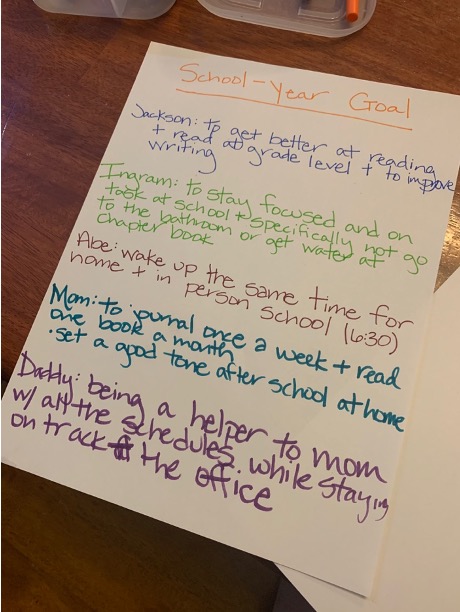 School-Year Goal
Jackson: to get better at reading
+ read at grade level + to improve
writing
Ingram: to stay focused and on
task at school + specifically not go
to the bathroom or get water at
chapter book
Abe: wake up the same time for
home + in person school (6:30)
Mom: to journal once a week + read
one book a month
• set a good tone after school at home
Daddy: being a helper to mom
w/ all the schedules while staying
on track @ the office